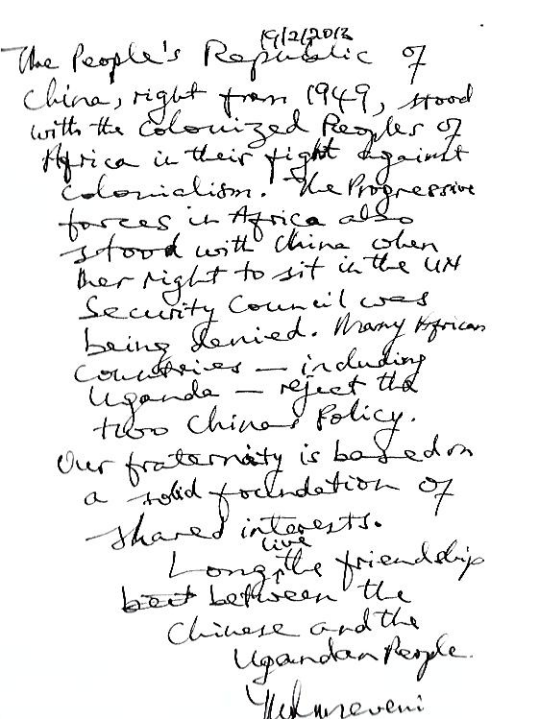 19/2/2013
The People's Republic of
China, right from 1949, stood
with the Colonized Peoples of
Africa in their fight against
colonialism. The Progressive
forces in Africa also
stood with China when
her right to sit in the UN
Security Council was
being denied. Many African
Countries — including
Uganda — reject the
two Chinas Policy.
Our fraternity is based on
a solid foundation of
shared interests.
live
Long, the friendship
between the
Chinese and the
Ugandan People.